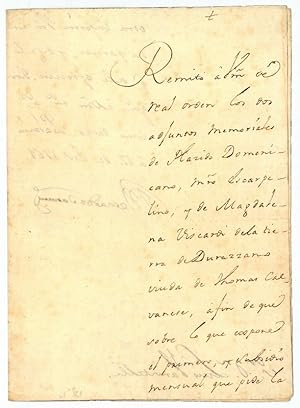 Remito à Vm de
real orden los dos
adjuntos memoriales
de Placido Domeni-
cano, mro Scarpe-
lino, y de Magdale-
na Viscardi de la tie-
rra de Durazzano
viuda de Thomas Cal-
vanese, à fin de que
sobre lo que expone
el primero, y subsidio
mensual que pide la